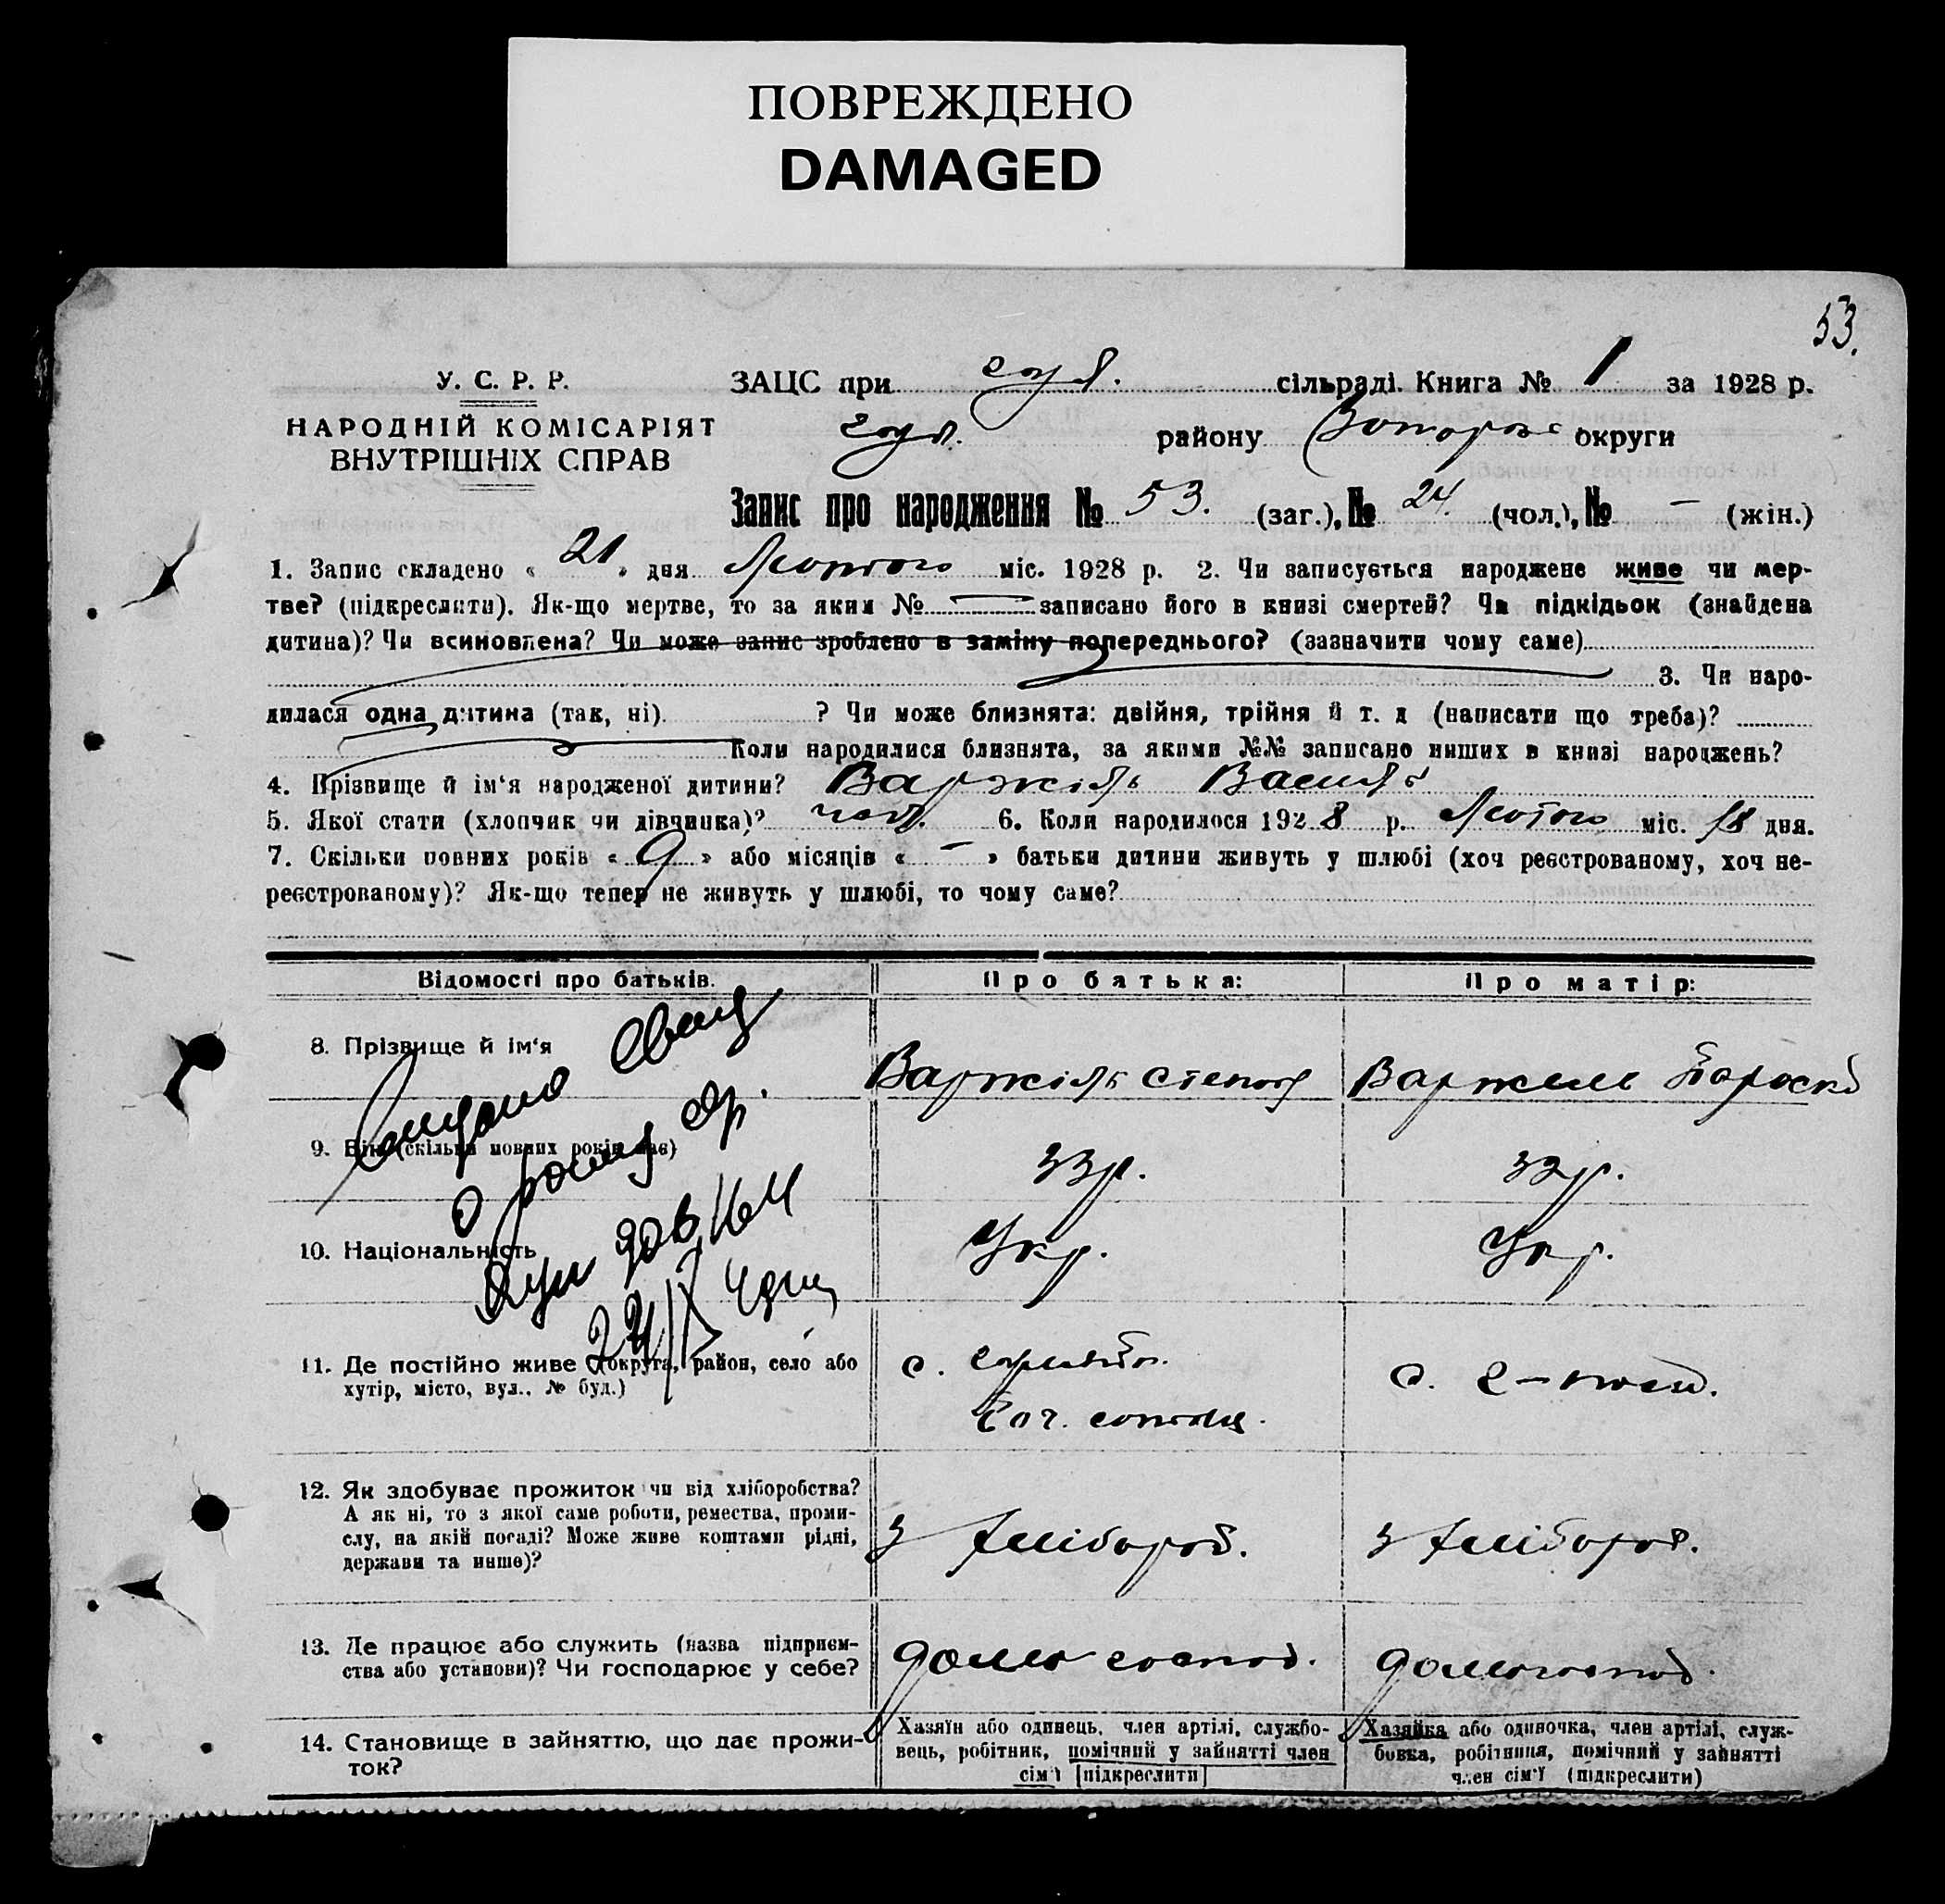 ПОВРЕЖДЕНО
DAMAGED
53.
У. С. Р. Р.
НАРОДНІЙ КОМІСАРІЯТ
ВНУТРІШНІХ СПРАВ
ЗАЦС при сільраді. Книга № 1 за 1928 р.
району округи
Запис про народження № 53. (заг.), № 24. (чол.), № — (жін.)
1. Запис складено « 21 » дня Лютого міс. 1928 р. 2. Чи записується народжене живе чи мер-
тве? (підкреслити). Як-що мертве, то за яким № — записано його в книзі смертей? Чи підкідьок (знайдена
дитина)? Чи всиновлена? Чи може запис зроблено в заміну попереднього? (зазначити чому саме)
3. Чи наро-
дилася одна дитина (так, ні) ? Чи може близнята: двійня, трійня й т. д (написати що треба)?
Коли народилися близнята, за якими №№ записано инших в книзі народжень?
4. Прізвище й ім‘я народженої дитини? Варжіль Василь
5. Якої стати (хлопчик чи дівчинка)? чол. 6. Коли народилося 1928 р. Лютого міс. 18 дня.
7. Скільки повних років « 9 » або місяців « — » батьки дитини живуть у шлюбі (хоч реєстрованому, хоч не-
реєстрованому)? Як-що тепер не живуть у шлюбі, то чому саме?
Відомості про батьків. Про батька: Про матір:
8. Прізвище й ім‘я Варжіль Степан Варжель Параска
9. Вік (скільки повних років має) 33 р. 32 р.
10. Національність Укр. Укр.
11. Де постійно живе (округа, район, село або
хутір, місто, вул., № буд.)
с.
с.
12. Як здобуває прожиток чи від хліборобства?
А як ні, то з якої саме роботи, ремества, проми-
слу, на якій посаді? Може живе коштами рідні,
держави та инше)?
з хлібороб. з хлібороб.
13. Де працює або служить (назва підприєм-
ства або установи)? Чи господарює у себе?
домогоспод. домогоспод.
14. Становище в зайняттю, що дає прожи-
ток?
Хазяїн або одинець, член артілі, службо-
вець, робітник, помічний у зайнятті член
сім‘ї [підкреслити]
Хазяйка або одиночка, член артілі, служ-
бовка, робітниця, помічний у зайнятті
член сім‘ї (підкреслити)